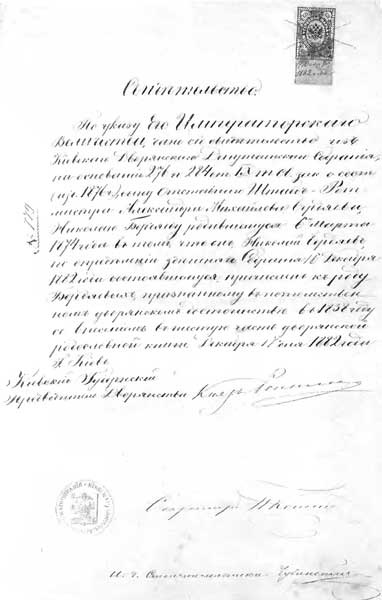 Свидѣтельство.
По указу Его Императорскаго
Величества, дано сіе свидѣтельство изъ
Кіевскаго Дворянскаго Депутатскаго Собранія,
на основаніи 276 и 284 ст. IX т. Св. зак. о сост.
(изд. 1876 г.), сыну Отставнаго Штабъ-Рот-
мистра Александра Михайлова Бердяева,
Николаю Бердяеву, родившемуся 6 Марта
1874 года въ томъ, что онъ, Николай Бердяевъ,
по опредѣленію здѣшняго Собранія, 16 Декабря
1882 года состоявшемуся, причисленъ къ роду
Бердяевыхъ, признанному въ потомствен-
номъ дворянскомъ достоинствѣ въ 1838 году
со внесеніемъ въ шестую часть дворянской
родословной книги. Декабря 18 дня 1882 года
г. Кіевъ
№ 779
Кіевскій Губернскій
Предводитель Дворянства Князь Репнинъ
Секретарь
И. д. Столоначальника